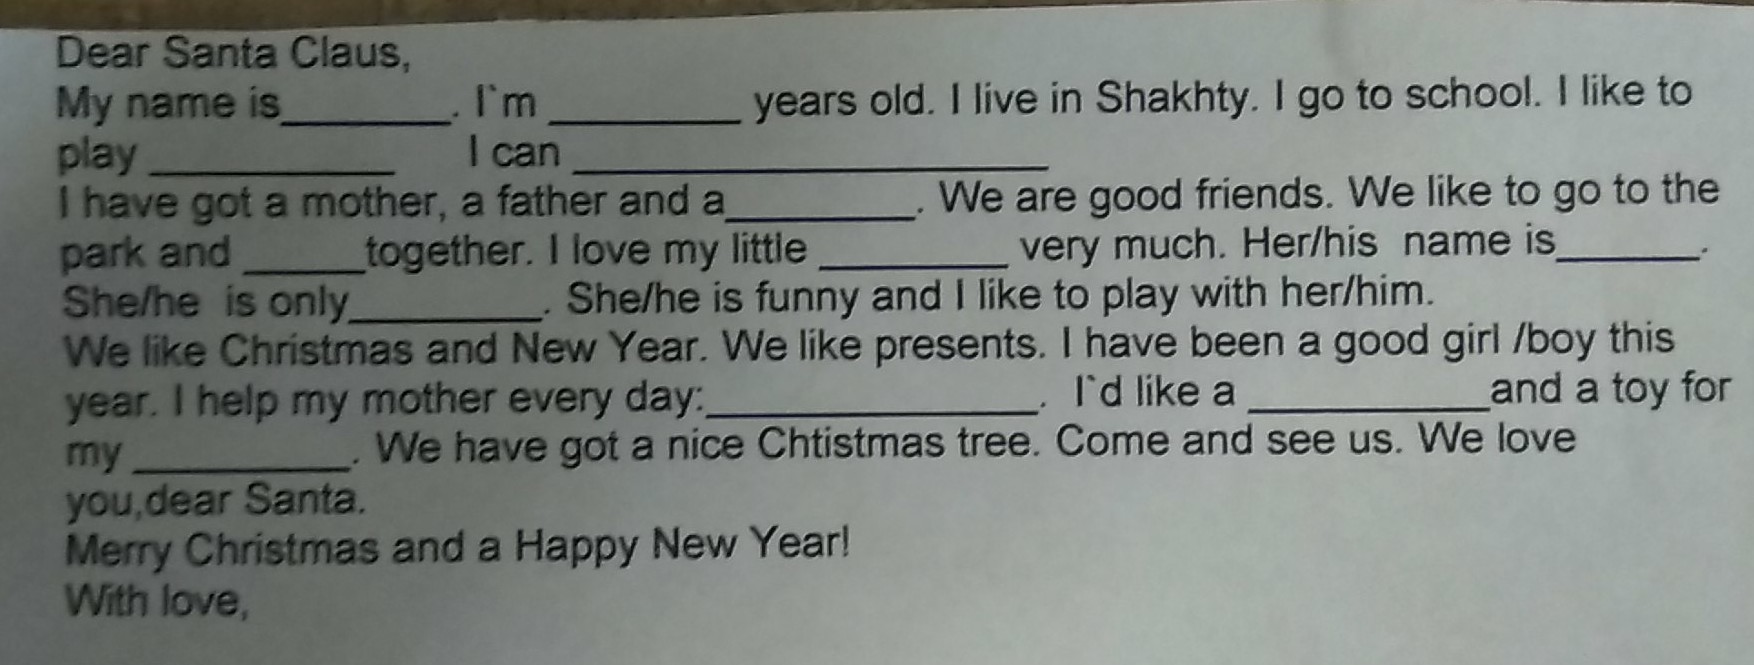 Dear Santa Claus,
My name is________. I`m _________ years old. I live in Shakhty. I go to school. I like to
play ____________ I can _______________________
I have got a mother, a father and a_________. We are good friends. We like to go to the
park and ______together. I love my little _________ very much. Her/his name is_______.
She/he is only_________. She/he is funny and I like to play with her/him.
We like Christmas and New Year. We like presents. I have been a good girl /boy this
year. I help my mother every day:________________. I`d like a ____________and a toy for
my __________. We have got a nice Chtistmas tree. Come and see us. We love
you,dear Santa.
Merry Christmas and a Happy New Year!
With love,